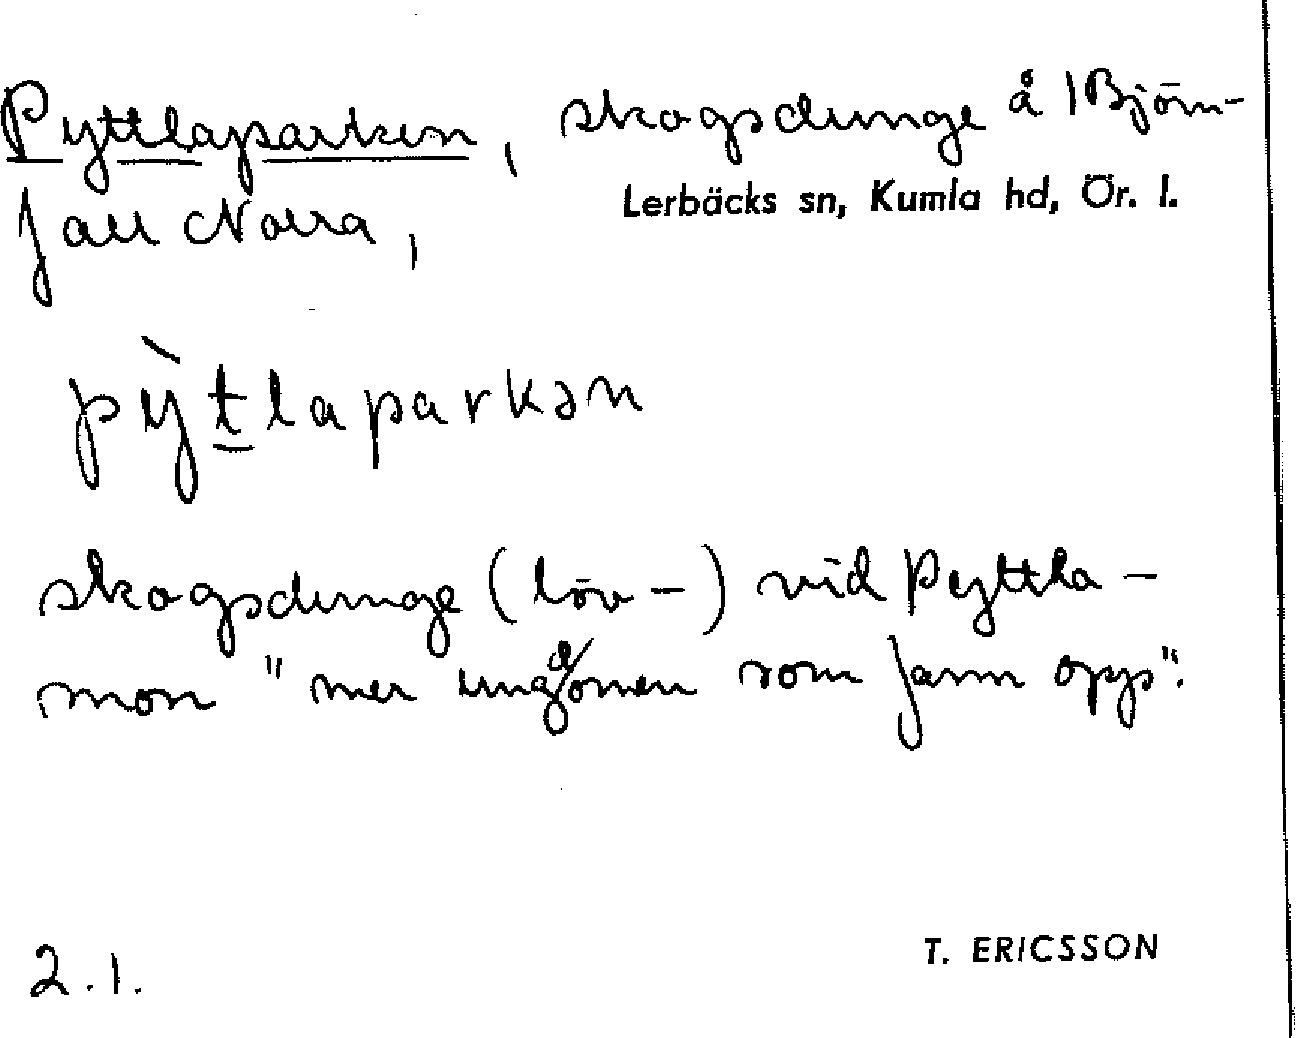 Pyttlaparken, skogsdunge å 1 Björn-
Lerbäcks sn, Kumla hd, Ör. l.
fall Norra,
pỳtlaparkən
skogsdunge (löv-) vid Pyttla-
mon "mer ungdomen som fann opp".
2.1.
T. ERICSSON